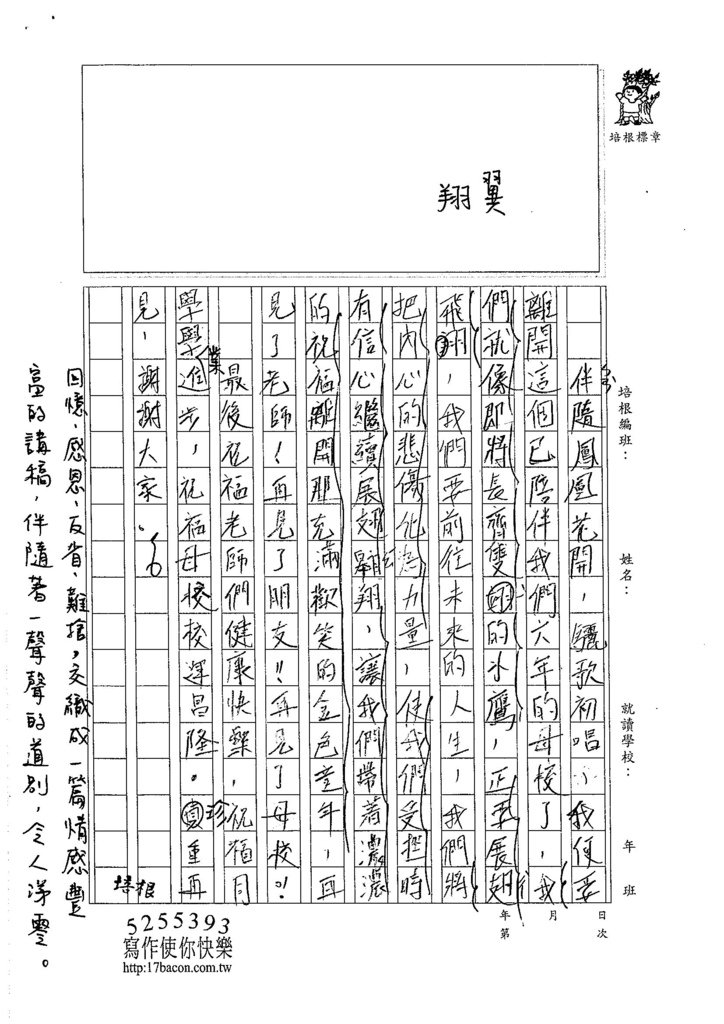 培根標章
翔翼
培根編班：
姓名：
就讀學校：
年 班
年 月 日
第 次
伴隨鳳凰花開，驪歌初唱，我便要
離開這個已陪伴我們六年的母校了，我
們就像即將長齊雙翅的小鷹，正要展翅
飛翔，我們要前往未來的人生，我們將
把內心的悲傷化為力量，使我們受挫時
有信心繼續展翅翱翔，讓我們帶著濃濃
的祝福離開那充滿歡笑的金色童年，再
見了老師！再見了朋友！！再見了母校！！
最後祝福老師們健康快樂，祝福同
學學業進步，祝福母校校運昌隆。珍重再
見，謝謝大家。
培根
回憶、感恩、反省、難捨，交織成一篇情感豐
富的講稿，伴隨著一聲聲的道別，令人涕零。
5255393
寫作使你快樂
http:17bacon.com.tw